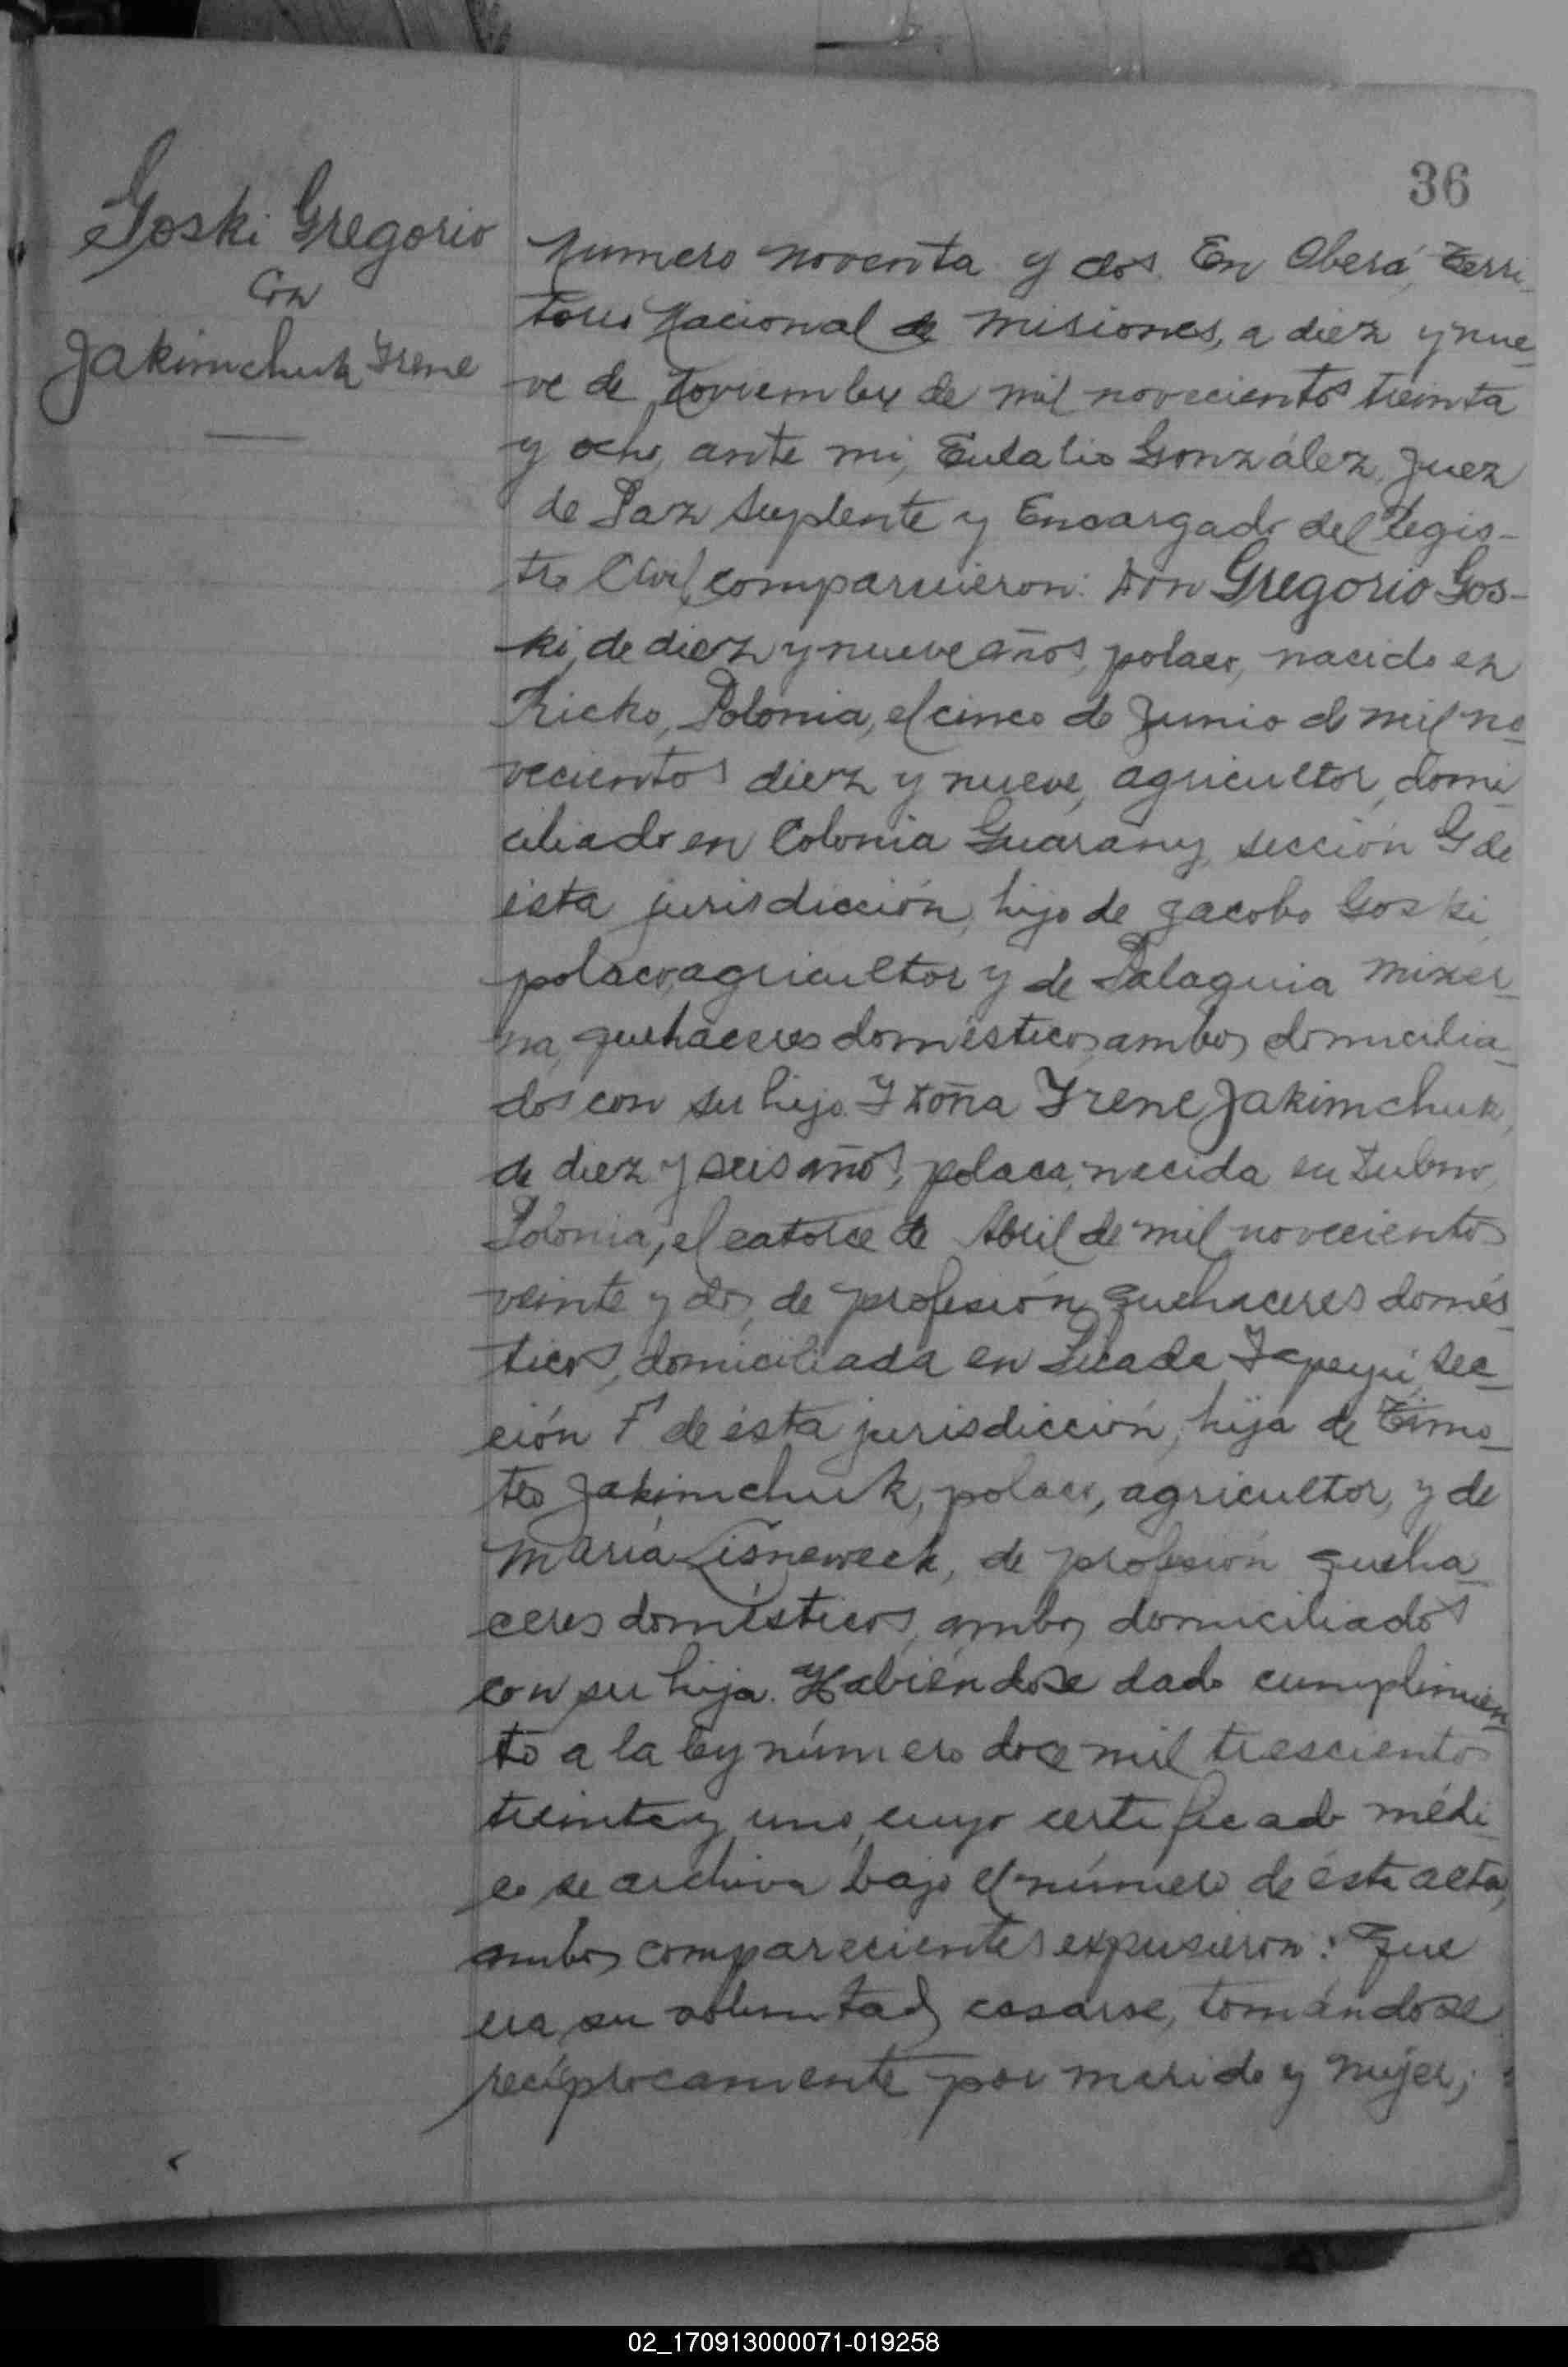 36
Goski Gregorio
Con
Jakimchuk Irene
Numero noventa y dos. En Oberá, Terri-
torio Nacional de Misiones, a diez y nue-
ve de Noviembre de mil novecientos treinta
y ocho, ante mi, Eulalio González, Juez
de Paz Suplente y Encargado del Regis-
tro Civil, comparecieron: Don Gregorio Gos-
ki, de diez y nueve años, polaco, nacido en
Polonia, el cinco de Junio de mil no-
vecientos diez y nueve, agricultor, domi-
ciliado en Colonia Guarany, sección G de
ésta jurisdicción, hijo de Jacobo Goski,
polaco, agricultor y de Palaguia Mixer-
na, quehaceres domésticos, ambos domicilia-
dos con su hijo. Y Doña Irene Jakimchuk,
de diez y seis años, polaca, nacida en Dubno,
Polonia, el catorce de Abril de mil novecientos
veinte y dos, de profesión quehaceres domés-
ticos, domiciliada en Picada Yapeyú, sec-
ción F de ésta jurisdicción, hija de Timo-
teo Jakimchuk, polaco, agricultor, y de
María Lisneweek, de profesión queha-
ceres domésticos, ambos domiciliados
con su hija. Habiéndose dado cumplimien-
to a la ley número doce mil trescientos
treinta y uno, cuyo certificado médi-
co se archiva bajo el número de ésta acta,
ambos comparecientes expusieron: Que
era su voluntad casarse, tomándose
recíprocamente por marido y mujer;
02_170913000071-019258